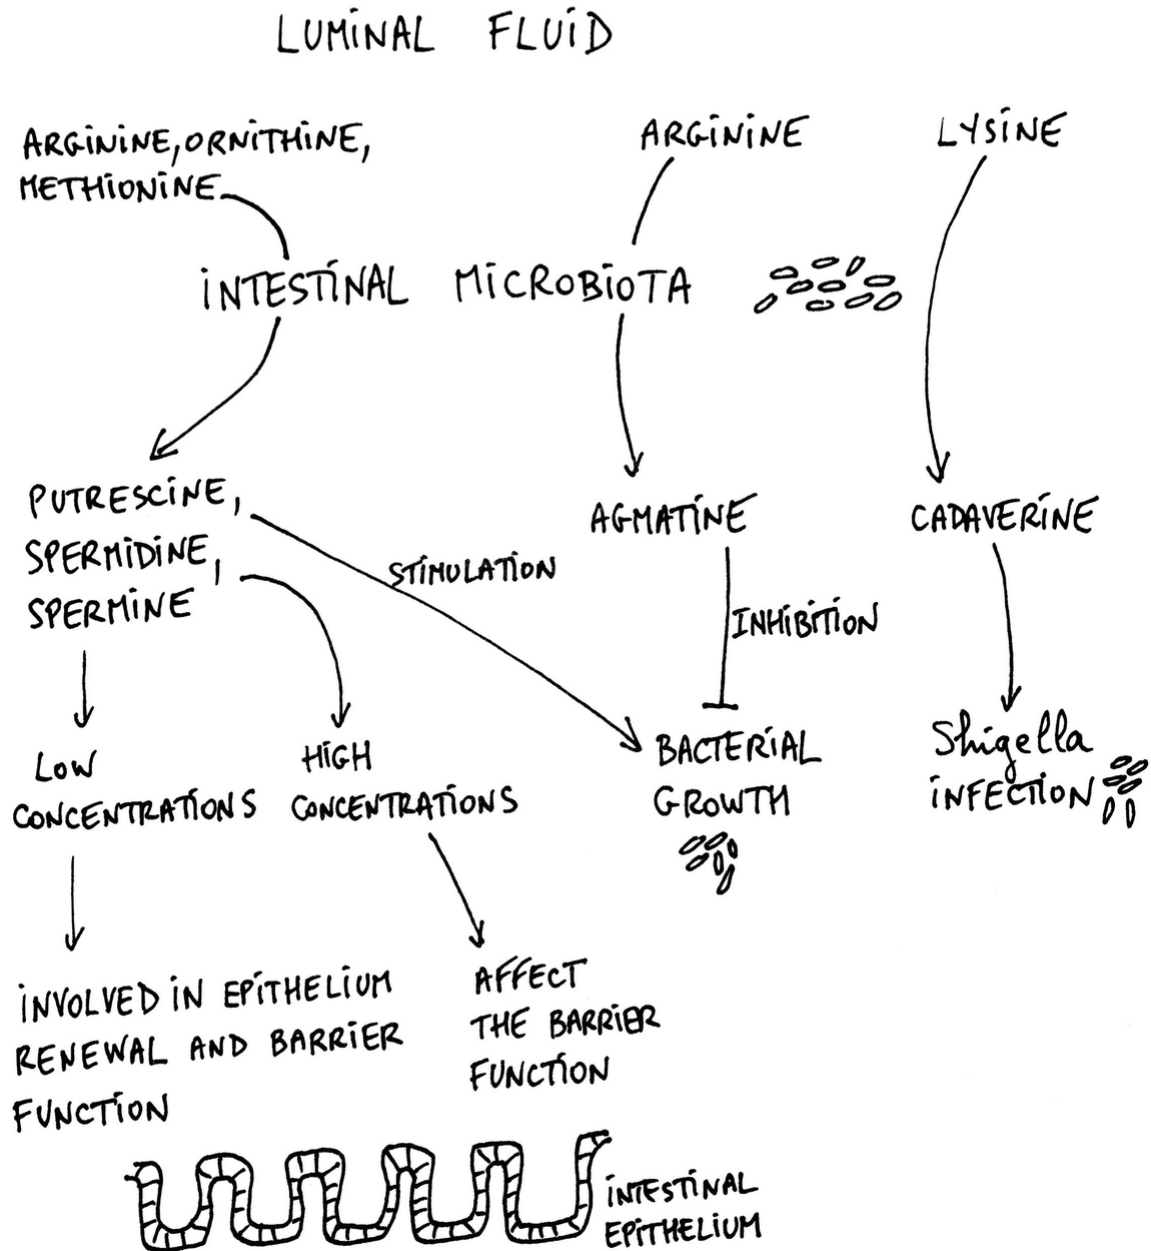 LUMINAL FLUID
ARGININE, ORNITHINE,
METHIONINE
ARGININE
LYSINE
INTESTINAL MICROBIOTA
PUTRESCINE,
SPERMIDINE,
SPERMINE
AGMATINE
CADAVERINE
STIMULATION
INHIBITION
LOW
CONCENTRATIONS
HIGH
CONCENTRATIONS
BACTERIAL
GROWTH
Shigella
INFECTION
INVOLVED IN EPITHELIUM
RENEWAL AND BARRIER
FUNCTION
AFFECT
THE BARRIER
FUNCTION
INTESTINAL
EPITHELIUM